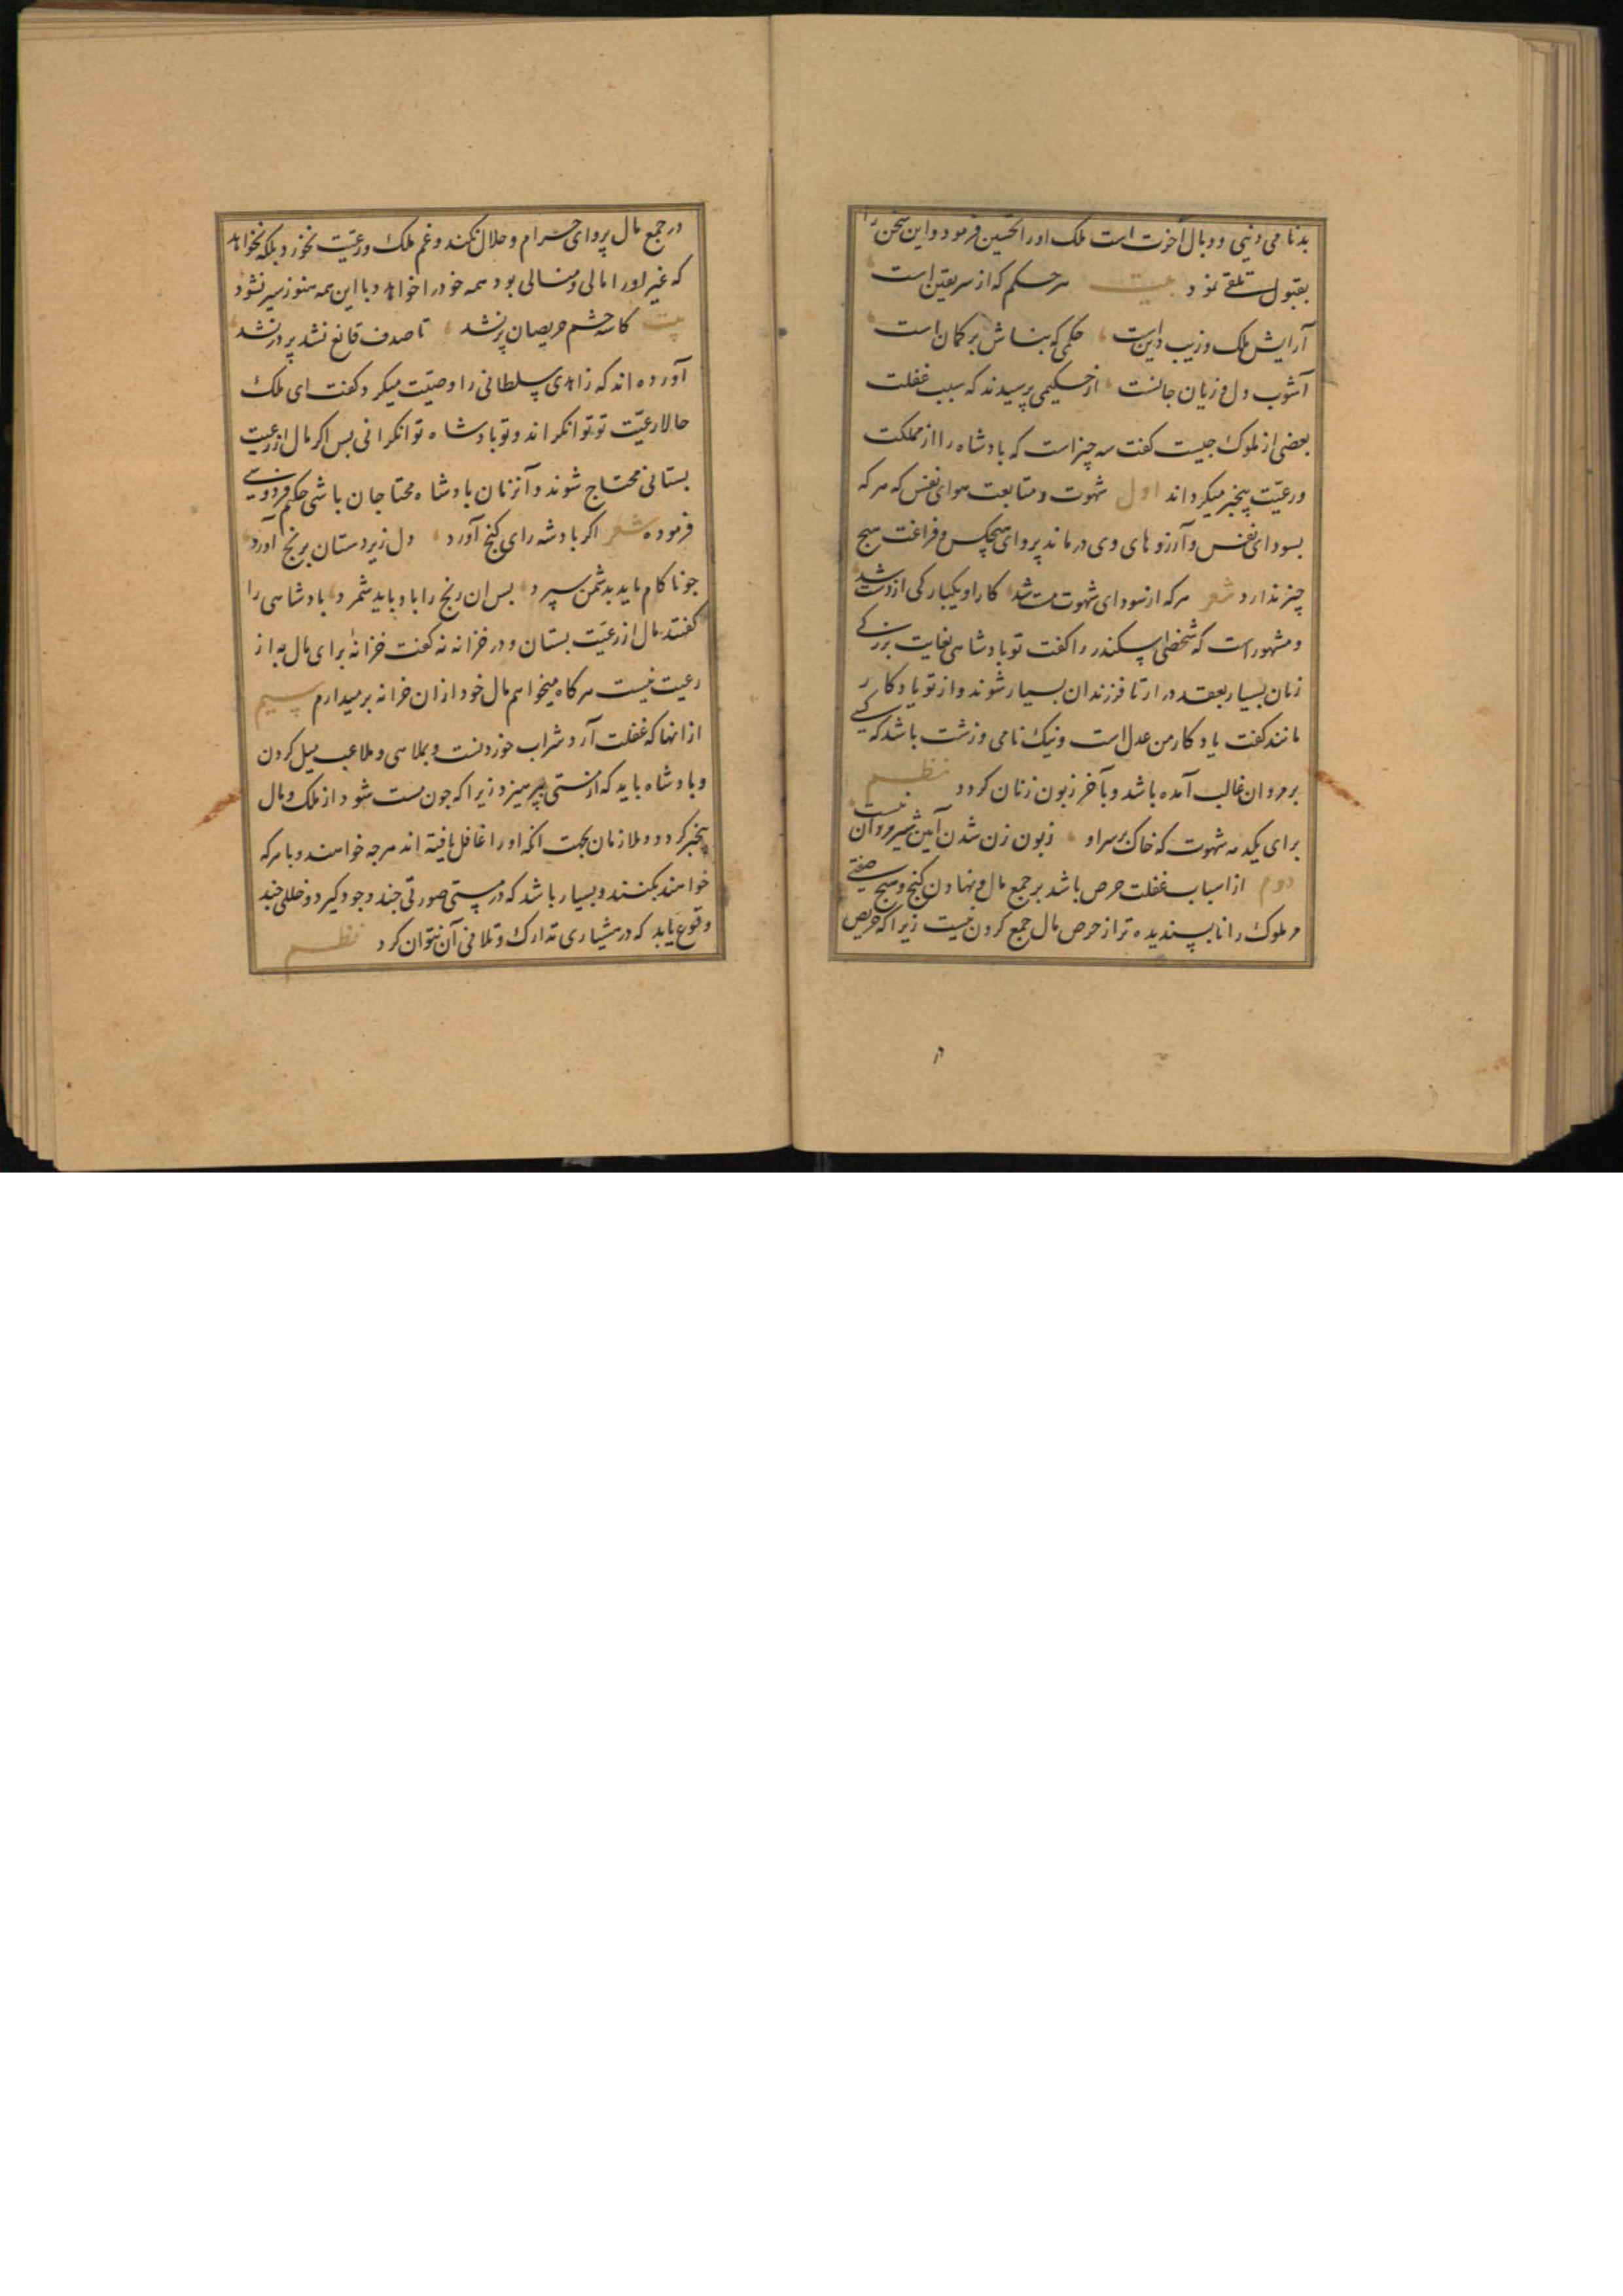 بدنامی دنیی ووبال آخرت است ملک اورا تحسین فرمود واین سخن را
بقبول تلقی نمود بیت هر حکم که از سر یقین است
آرایش ملک وزیب دین است حکمی که بناش بر کمان است
آشوب دل وزیان جانست از حکیمی پرسیدند که سبب غفلت
بعضی از ملوک جیست کفت سه چیز است که بادشاه را از مملکت
ورعیّت بیخبر میکرداند اول شهوت ومتابعت هوای نفس که هر که
بسودای نفس وآرزوهای وی درماند پروای هیچکس وفراغت هیج
چیز ندارد شعر هر که از سودای شهوت مست شد کار او یکبارکی از دست شد
ومشهور است که شخصی اسکندر را کفت تو بادشاهی بغایت بزرکی
زنان بسیار بعقد در ار تا فرزندان بسیار شوند واز تو یادکار
مانند کفت یادکار من عدل است ونیک نامی وزشت باشد که کسی
بر مردان غالب آمده باشد وبآخر زبون زنان کردد نظم
برای یکدمه شهوت که خاک بر سر او زبون زن شدن آیین شیر مردان نیست
دوم از اسباب غفلت حرص باشد بر جمع مال ونهادن کنج وهیج صفتی
مر ملوک را ناپسندیده تر از حرص مال جمع کردن نیست زیرا که حریص
در جمع مال پروای حرام وحلال نکند وغم ملک ورعیّت نخورد بلکه نخواهد
که غیر اورا مالی ومنالی بود همه خود را خواهد وبا این همه هنوز سیر نشود
بیت کاسه چشم حریصان پر نشد تا صدف قانع نشد پر در نشد
آورده اند که زاهدی سلطانی را وصیّت میکرد کفت ای ملک
حالا رعیّت تو توانکر اند وتو بادشاه توانکرانی بس اکر مال از رعیت
بستانی محتاج شوند وآنزنان بادشاه محتاجان باشی حکیم فردوسی
فرموده شعر اکر بادشه رای کنج آورد دل زیردستان برنج آورد
جو ناکام باید بدشمن سپرد بس ان رنج را باد باید شمرد بادشاهی را
کفتند مال از رعیّت بستان ودر خزانه نه کفت خزانهٔ برای مال به از
رعیت نیست هر کاه میخواهم مال خود ازان خزانه برمیدارم سیم
از انها که غفلت آرد شراب خوردنست وبملاهی وملاعب میل کردن
وبادشاه باید که از مستی بپرهیزد زیرا که جون مست شود از ملک ومال
بیخبر کردد وملازمان بجهت انکه اورا غافل یافته اند هر جه خواهند وبا هر که
خواهند بکنند وبسیار باشد که در مستی صورتی جند وجود کیرد وخللی جند
وقوع یابد که در هشیاری تدارک وتلافی آن نتوان کرد نظم
در